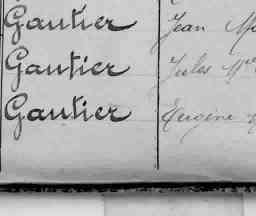 Gautier Jean
Gautier Jules
Gautier Eugène